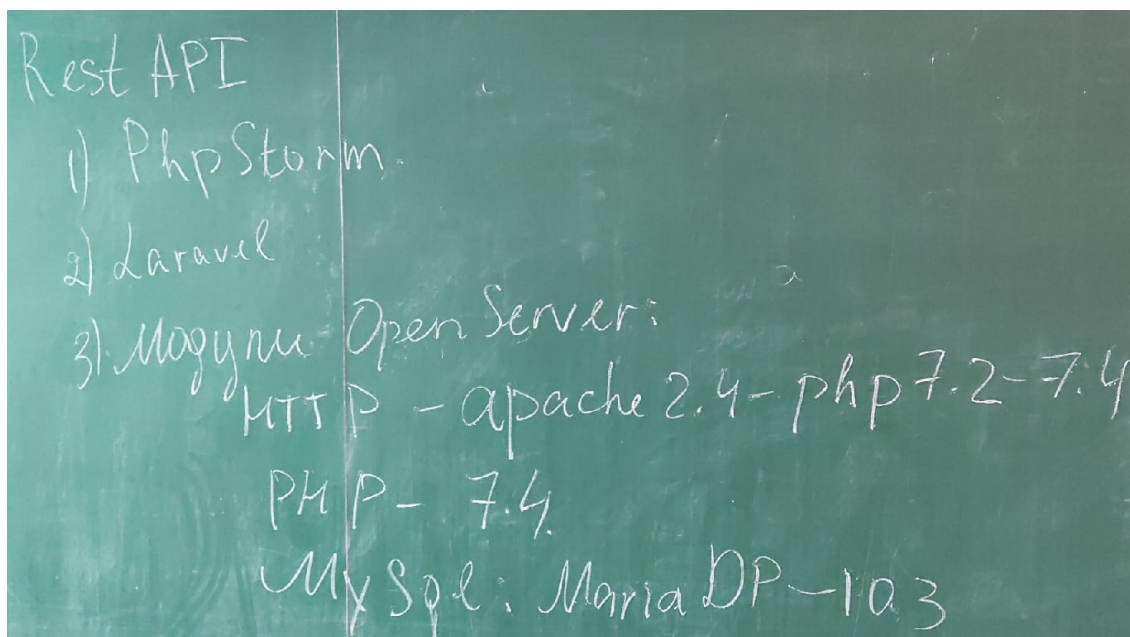 Rest API
1) PhpStorm.
2) Laravel
3) Модули Open Server:
HTTP - apache 2.4 - php 7.2-7.4
PHP - 7.4.
MySql. MariaDP-10.3